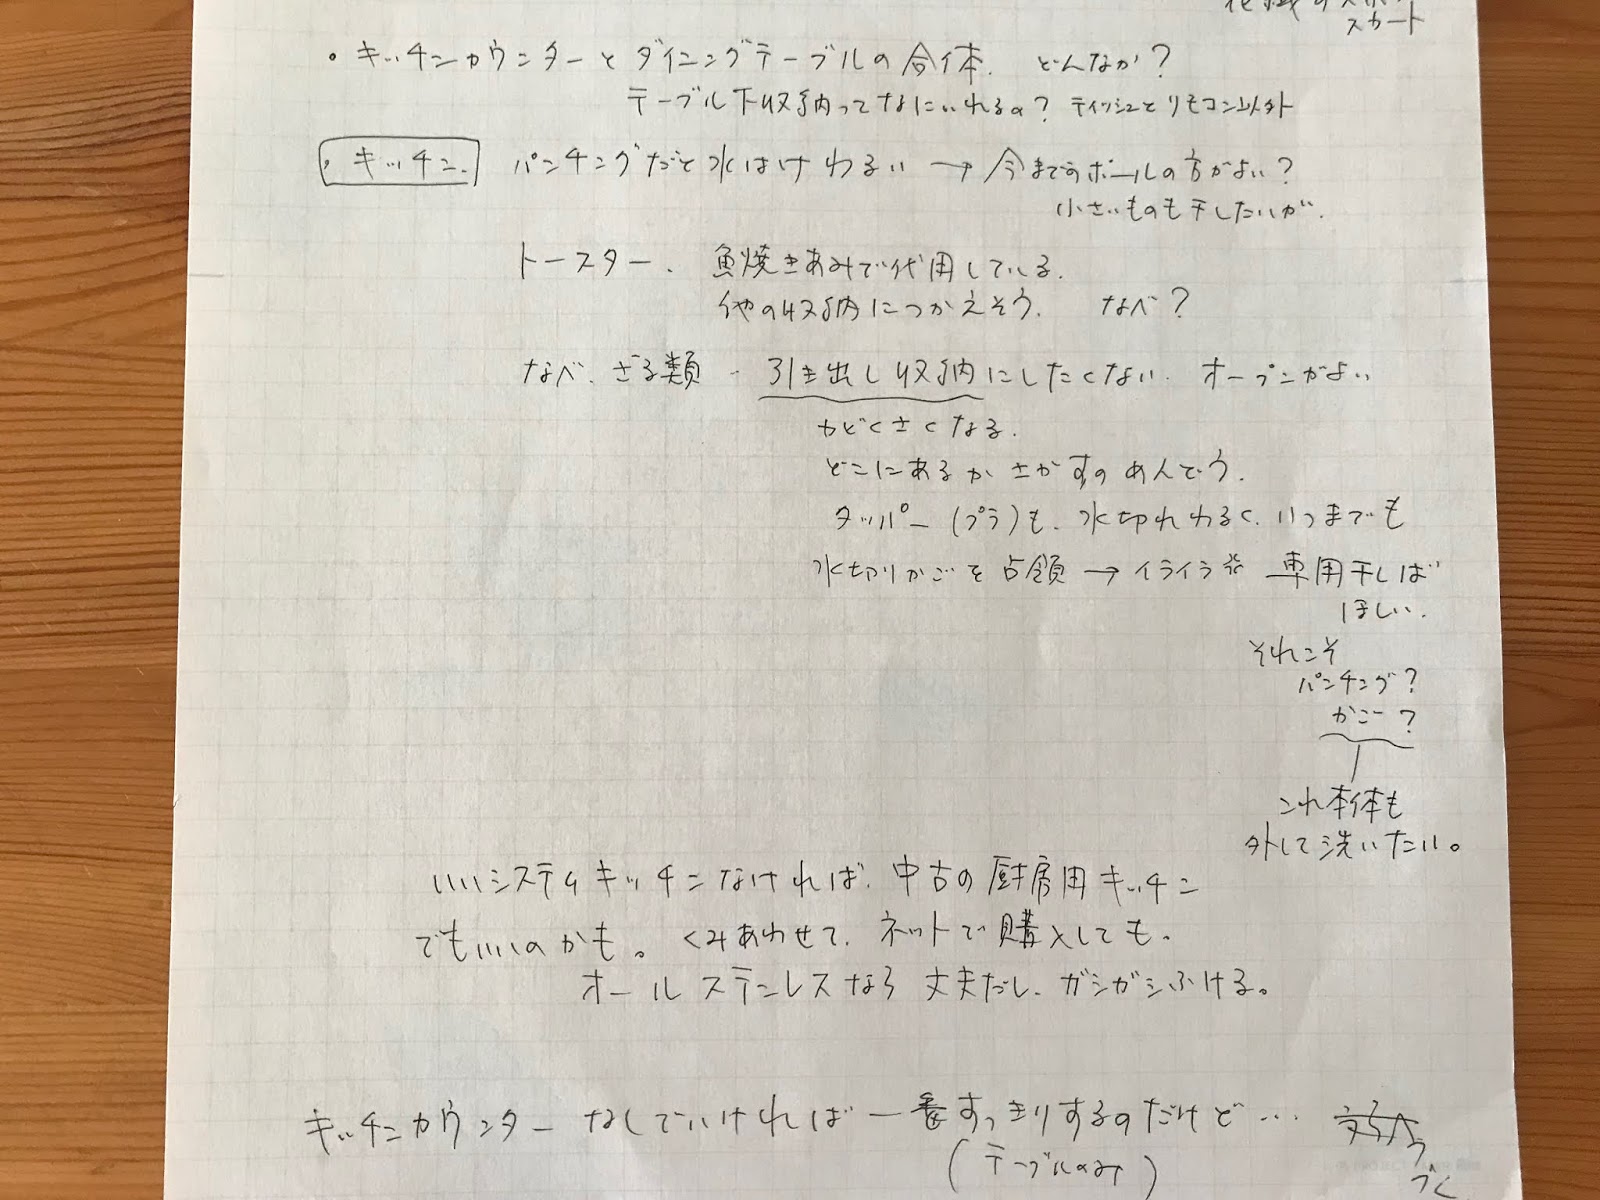 スカート
・キッチンカウンターとダイニングテーブルの合体. どんなか?
テーブル下収納ってなにいれるの? ティッシュとリモコン以外
・キッチン. パンチングだと水はけわるい → 今までのボールの方がよい?
小さいものも干したいが.
トースター. 魚焼きあみで代用している.
他の収納につかえそう. なべ?
なべ、ざる類 - 引き出し収納にしたくない. オープンがよい
かどくさくなる.
どこにあるかさがすのめんどう.
タッパー(プラ)も、水切れわるく、いつまでも
水切りかごを占領 → イライラ 専用干しば
ほしい.
それこそ
パンチング?
かごー?
これ本体も
外して洗いたい。
いいシステムキッチンなければ、中古の厨房用キッチン
でもいいのかも。くみあわせて、ネットで購入しても。
オールステンレスなら丈夫だし、ガシガシふける。
キッチンカウンターなしでいければ一番すっきりするのだけど…
(テーブルのみ)